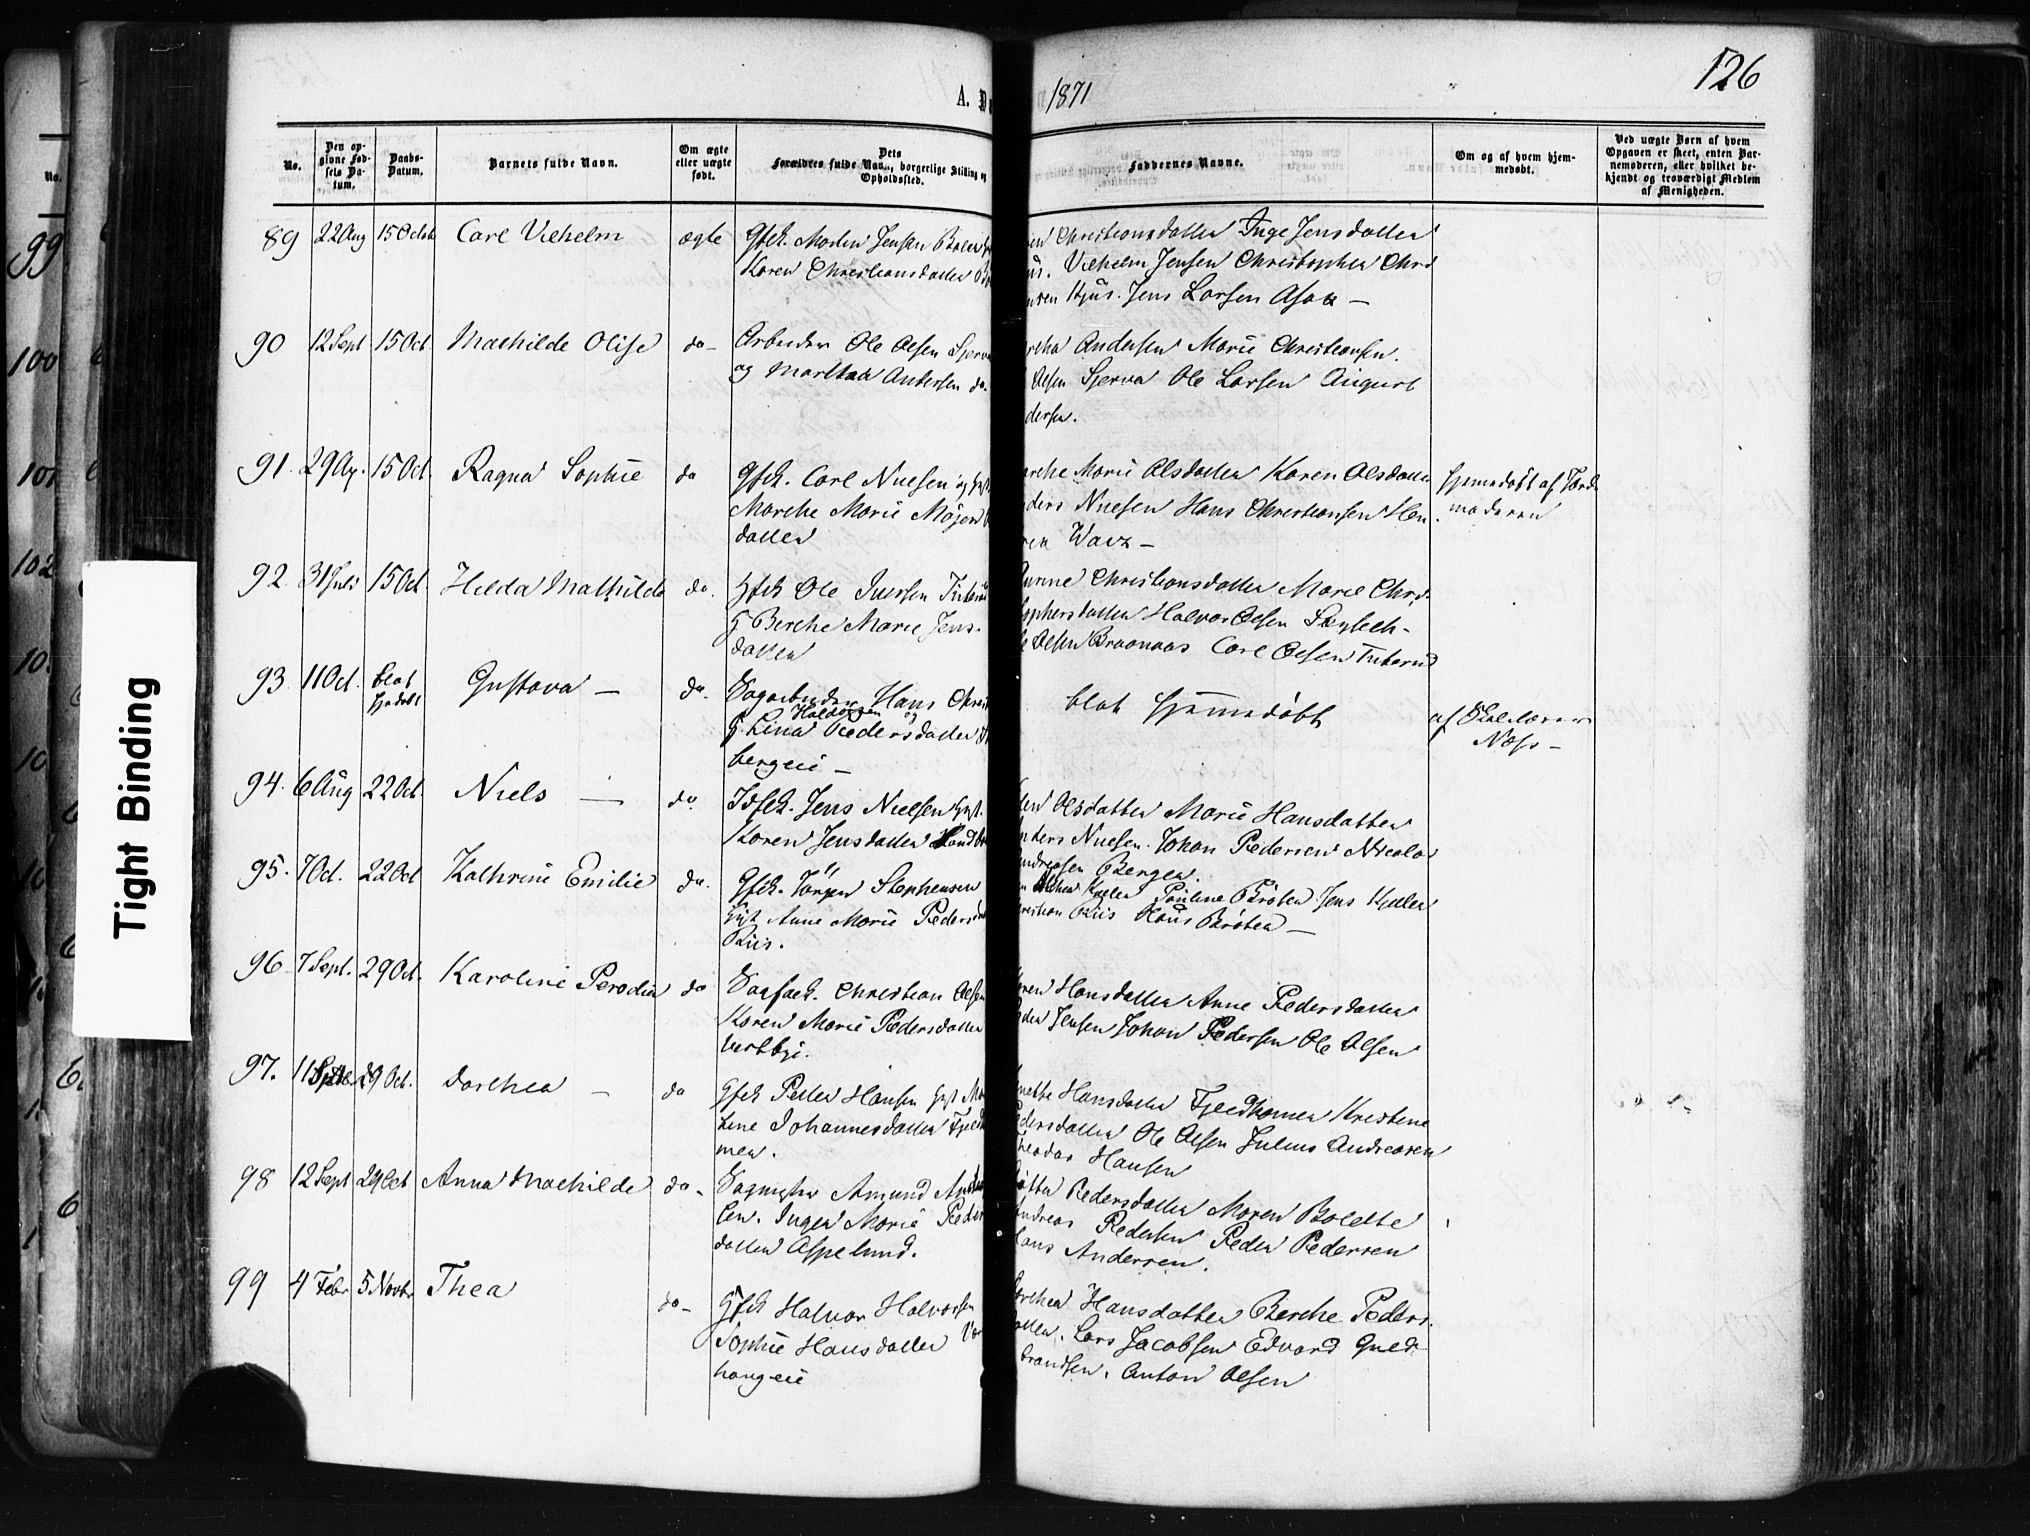 126
A. D
1871
No.
Den opgivne Fødsels Datum.
Daabs-Datum.
Barnets fulde Navn.
Om ægte eller uægte født.
Dets Forældres fulde Navn, borgerlige Stilling og Opholdssted.
Faddernes Navne.
Om og af hvem hjemmedøbt.
Ved uægte Børn af hvem Opgaven er skeet, enten Barnemoderen, eller hvilket bekjendt og troværdigt Medlem af Menigheden.
89 22 Aug 15 Octob Carl Vilhelm ægte Gfek. Morten Jensen
Karen Christiansdatter
Christiansdatter Inge Jensdatter
Vilhelm Jensen Christopher Chri
Hjus. Jens Larsen Asak —
90 12 Sept 15 Oct Mathilde Olise do— Arbeider Ole Olsen Sjerva
og Marthea Andersen do.
Andersen Marie Christiansen.
Olsen Sjerva Ole Larsen August
dersen.
91. 29 Ag. 15 Oct. Ragna Sophie do Gfek. Carl Nielsen og Gft
Marthe Marie Mogens
datter
arthe Marie Olsdatter Karen Olsdatter
ders Nielsen Hans Christiansen Hen
Warz —
Hjemmedøbt af Jord-
moderen
92. 31 Juli 15 Oct. Hilda Mathilde do. Gfek Ole Iversen
G Berthe Marie Jens-
datter
Christiansdatter Marie Chri-
stophersdatter Halvor Olsen
Olsen Braanaas Carl Olsen
93. 11 Oct. blot hjdøbt Gustava — do. Sagarbeider Hans Christ
Haldorsen og
G. Lina Pedersdatter
bergeie —
blot hjemmedøbt
af Skolelærer
Næss —
94. 6 Aug 22 Oct. Niels — do. Idfek. Jens Nielsen Gft.
Karen Jensdatter
Olsdatter Marie Hansdatter
nders Nielsen. Johan Pedersen Nicolai
Andreasen Bergen.
95. 7 Oct. 22 Oct Kathrine Emilie do. Gfek. Jörgen Stephensen
Gft Anne Marie Peders
Riis.
Pauline Bråten Jens Kjeller
ristian Riis Hans Bråten —
96 7 Sept. 29 Oct. Karoline Perodia do Sagfaek. Christian Olsen
Karen Marie Pedersdatter
Vestbye.
aren Hansdatter Anne Pedersdatter
Peder Jensen Johan Pedersen Ole Olsen
97. 11 Septbr 29 Oct. Dorthea — do Gfek Petter Hansen Gft Ma
tine Johannesdatter Fjeld
mer.
nette Hansdatter Fjeldhamer Kristine
Pedersdatter Ole Olsen Julius Andreasen
Theodor Hansen
98 12 Sept 29 Oct Anna Mathilde do— Sagmester Amund Ander
sen. Inger Marie Peder
datter Aspelund.
Pedersdatter Maren Bolette
Andreas Pedersen Peder Pedersen
Hans Andersen.
99 4 Febr 5 Novbr Thea do— Gfek Halvor Halvorsen
Sophie Hansdatter
haugeie
Dorthea Hansdatter Berthe Peders-
datter. Lars Jacobsen Edvard Guld-
brandsen. Anton Olsen
Tight Binding